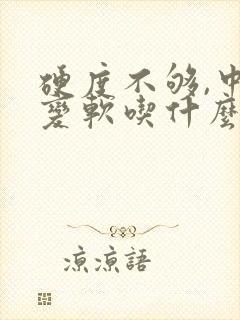 硬度不够,中
变軟喫什麼
凉凉語